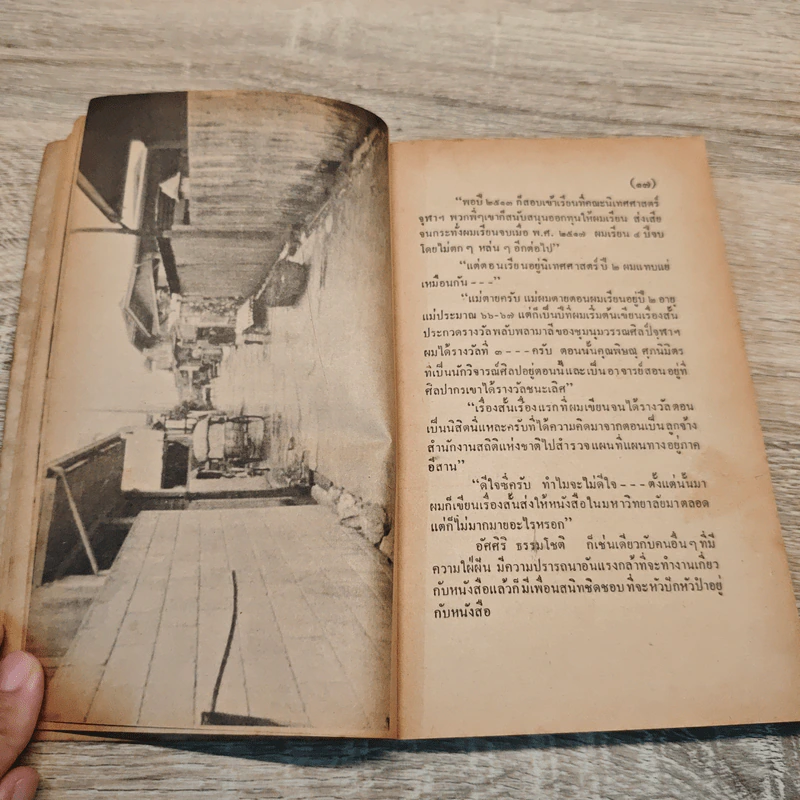 (๑๗)
“พอปี ๒๕๑๓ ก็สอบเข้าเรียนที่คณะนิเทศศาสตร์
จุฬาฯ พวกพี่ๆเขาก็สนับสนุนออกทุนให้ผมเรียน ส่งเสีย
จนกระทั่งผมเรียนจบเมื่อ พ.ศ. ๒๕๑๗ ผมเรียน ๔ ปีจบ
โดยไม่ตก ๆ หล่น ๆ อีกต่อไป”
“แต่ตอนเรียนอยู่นิเทศศาสตร์ ปี ๒ ผมแทบแย่
เหมือนกัน - - -”
“แม่ตายครับ แม่ผมตายตอนผมเรียนอยู่ปี ๒ อายุ
แม่ประมาณ ๖๖-๖๗ แต่ก็เป็นปีที่ผมเริ่มต้นเขียนเรื่องสั้น
ประกวดรางวัลพลับพลามาลีของชุมนุมวรรณศิลป์จุฬาฯ
ผมได้รางวัลที่ ๓ - - - ครับ ตอนนั้นคุณพิษณุ ศุภนิมิตร
ที่เป็นนักวิจารณ์ศิลปอยู่ตอนนี้และเป็นอาจารย์สอนอยู่ที่
ศิลปากรเขาได้รางวัลชนะเลิศ”
“เรื่องสั้นเรื่องแรกที่ผมเขียนจนได้รางวัลตอน
เป็นนิสิตนี่แหละครับที่ได้ความคิดมาจากตอนเป็นลูกจ้าง
สำนักงานสถิติแห่งชาติไปสำรวจแผนที่แผนทางอยู่ภาค
อีสาน”
“ดีใจซี่ครับ ทำไมจะไม่ดีใจ - - - ตั้งแต่นั้นมา
ผมก็เขียนเรื่องสั้นส่งให้หนังสือในมหาวิทยาลัยมาตลอด
แต่ก็ไม่มากมายอะไรหรอก”
อัศศิริ ธรรมโชติ ก็เช่นเดียวกับคนอื่น ๆ ที่มี
ความใฝ่ฝัน มีความปรารถนาอันแรงกล้าที่จะทำงานเกี่ยว
กับหนังสือแล้วก็มีเพื่อนสนิทชิดชอบที่จะหัวปักหัวปำอยู่
กับหนังสือ